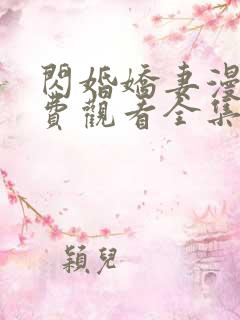 閃婚嬌妻漫
費觀看全集
穎兒